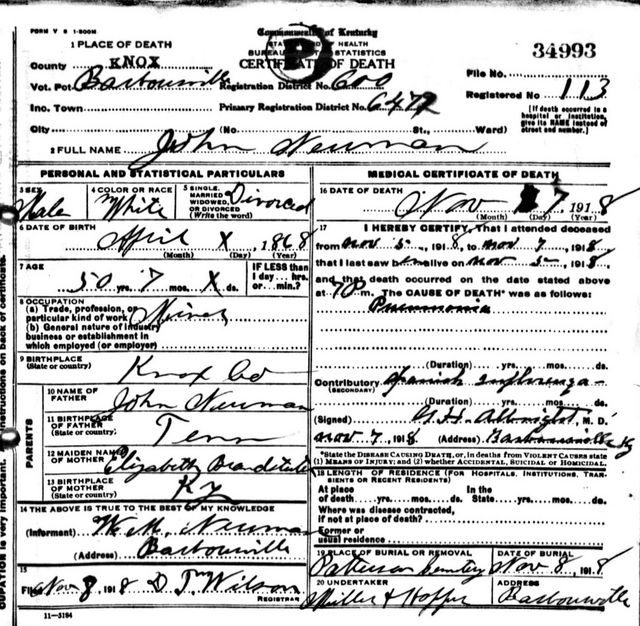 FORM V S 1-500M
Commonwealth of Kentucky
STATE BOARD OF HEALTH
BUREAU OF VITAL STATISTICS
CERTIFICATE OF DEATH
P
34993
1 PLACE OF DEATH
County KNOX
Vot. Pct Barbourville Registration District No. 600
File No.
Inc. Town Primary Registration District No. 6472
Registered No. 113
City (No St., Ward)
[If death occurred in a hospital or institution, give its NAME instead of street and number.]
2 FULL NAME John Neuman
PERSONAL AND STATISTICAL PARTICULARS
3 SEX Male
4 COLOR OR RACE White
5 SINGLE, MARRIED WIDOWED, OR DIVORCED (Write the word) Divorced
6 DATE OF BIRTH
April X, 1868
(Month) (Day) (Year)
7 AGE
50 yrs. 7 mos. X ds.
IF LESS than 1 day... hrs. or min.?
8 OCCUPATION
(a) Trade, profession, or particular kind of work Miner
(b) General nature of industry business or establishment in which employed (or employer)
9 BIRTHPLACE
(State or country) Knox Co
PARENTS
10 NAME OF FATHER John Neuman
11 BIRTHPLACE OF FATHER (State or country) Tenn
12 MAIDEN NAME OF MOTHER Elizabeth
13 BIRTHPLACE OF MOTHER (State or country) Ky
14 THE ABOVE IS TRUE TO THE BEST OF MY KNOWLEDGE
(Informant) W. M. Neuman
(Address) Barbourville
15
Filed Nov 8, 1918 D Wilson
REGISTRAR
11-5194
MEDICAL CERTIFICATE OF DEATH
16 DATE OF DEATH
Nov 7 1918
(Month) (Day) (Year)
17 I HEREBY CERTIFY, That I attended deceased
from Nov 5, 1918, to Nov 7, 1918,
that I last saw him alive on Nov 5, 1918,
and that death occurred on the date stated above
at m. The CAUSE OF DEATH* was as follows:
Pneumonia
(Duration) yrs. mos. ds.
Contributory Spanish influenza
(SECONDARY)
(Duration) yrs. mos. ds.
(Signed) G. H. Albright, M. D.
Nov 7, 1918 (Address) Barbourville Ky
*State the DISEASE CAUSING DEATH, or, in deaths from VIOLENT CAUSES state
(1) MEANS OF INJURY; and (2) whether ACCIDENTAL, SUICIDAL or HOMICIDAL.
18 LENGTH OF RESIDENCE (FOR HOSPITALS, INSTITUTIONS, TRANSIENTS OR RECENT RESIDENTS)
At place of death yrs. mos. ds. In the State yrs. mos. ds.
Where was disease contracted,
if not at place of death?
Former or
usual residence
19 PLACE OF BURIAL OR REMOVAL
Patterson Cemetery
DATE OF BURIAL
Nov 8, 1918
20 UNDERTAKER
Miller & Hopper
ADDRESS
Barbourville
OUPATION is very important. Instructions on back of certificate.